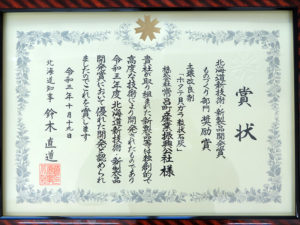 賞状
北海道新技術・新製品開発賞
ものづくり部門 奨励賞
土壌改良剤
「ホタテ貝ガラ粒状石灰」
株式会社常呂町産業振興公社様
貴社が取り組まれた新製品等は独創的で
高度な技術により開発されたものであり
令和元年度 北海道新技術・新製品
開発賞において優れた開発と認められ
ましたのでこれを賞します
令和元年十月十九日
北海道知事 鈴木直道